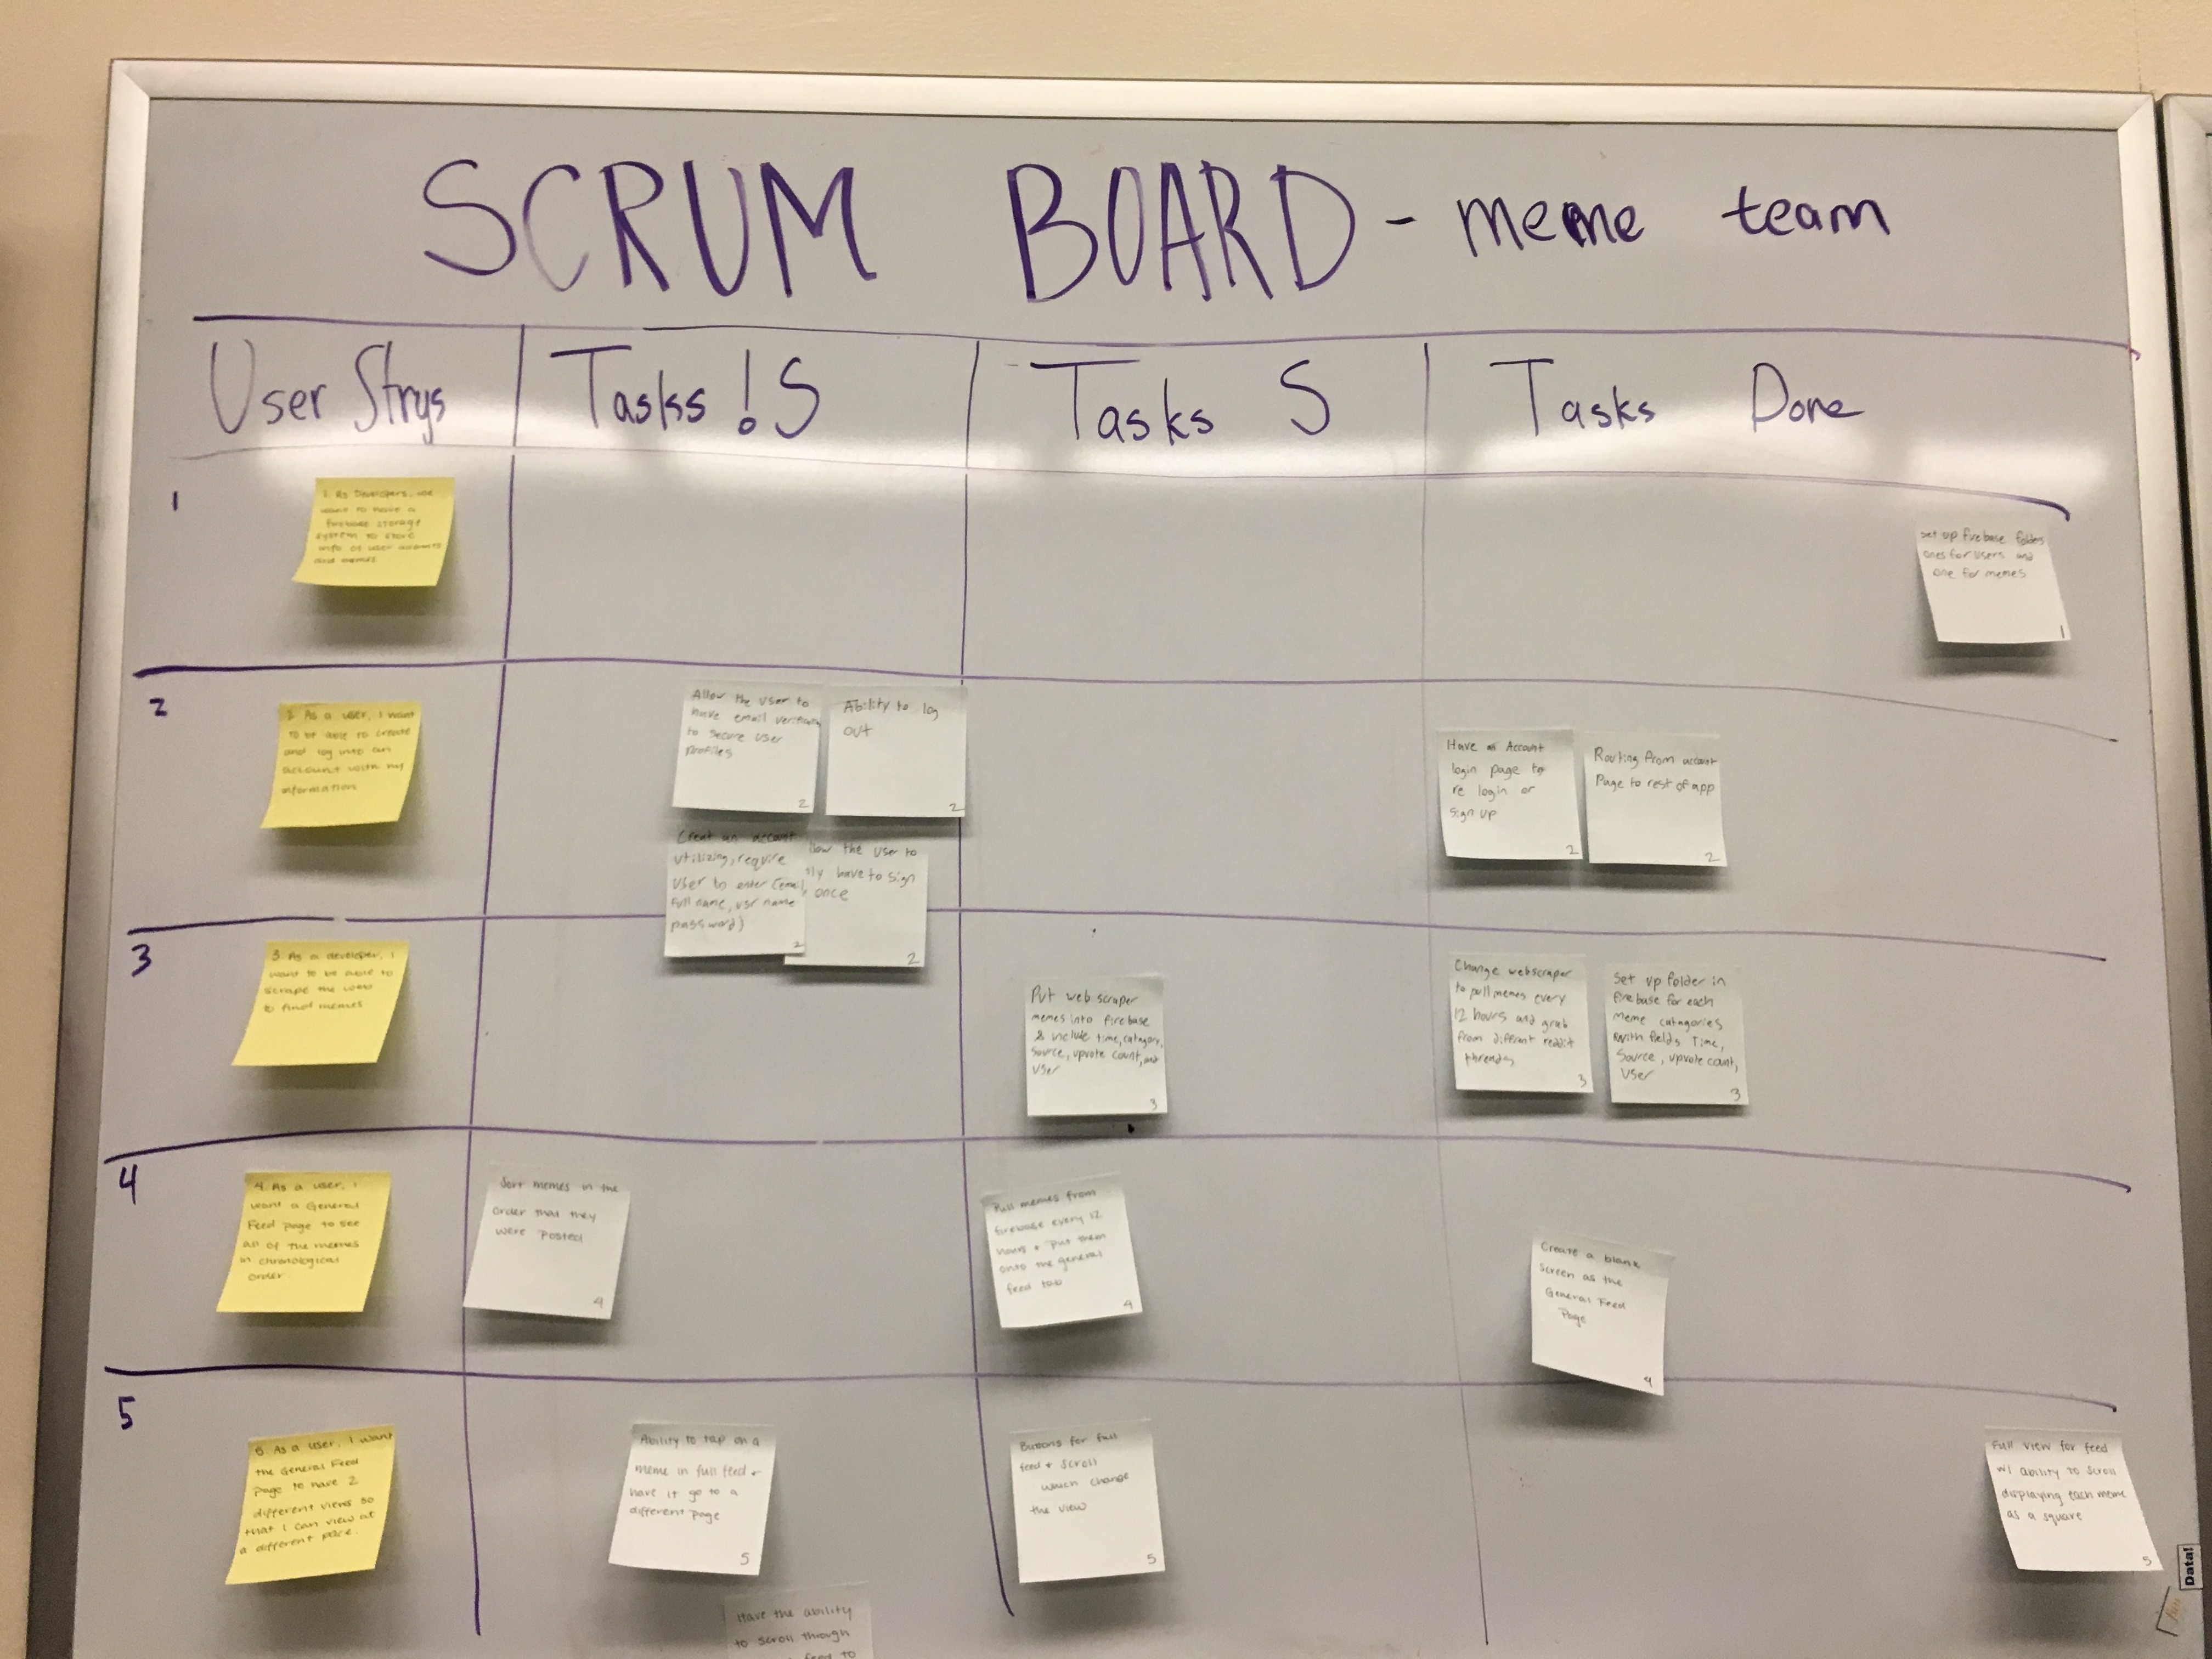 SCRUM BOARD - meme team
User Strys
Tasks !S
Tasks S
Tasks Done
1
1. As Developers, we
want to have a
firebase storage
system to store
info of user accounts
and memes.
set up firebase folders
ones for users and
one for memes
1
2
2. As a user, I want
to be able to create
and log into an
account with my
information.
Allow the user to
have email
to secure user
profiles
2
Ability to log
out
2
Creat an account
utilizing, require
user to enter (email,
full name, usr name
password)
2
the user to
have to sign
once
2
Have an Account
login page to
re login or
sign up
2
Routing from account
Page to rest of app
2
3
3. As a developer, I
want to be able to
scrape the web
to find memes
Put web scraper
memes into firebase
& include time, catagory,
source, upvote count, and
user
3
Change webscraper
to pull memes every
12 hours and grab
from different reddit
threads
3
Set up folder in
firebase for each
meme catagories
with fields Time,
Source, upvote count,
User
3
4
4. As a user, I
want a General
Feed page to see
all of the memes
in chronological
order.
Sort memes in the
order that they
were posted
4
Pull memes from
firebase every 12
hours + put them
onto the general
feed tab
4
Create a blank
screen as the
General Feed
Page
4
5
5. As a user, I want
the General Feed
Page to have 2
different views so
that I can view at
a different pace.
Ability to tap on a
meme in full feed +
have it go to a
different page
5
Have the ability
to scroll through
feed to
Buttons for full
feed + scroll
which change
the view
5
Full view for feed
w/ ability to scroll
displaying each meme
as a square
5
Data!